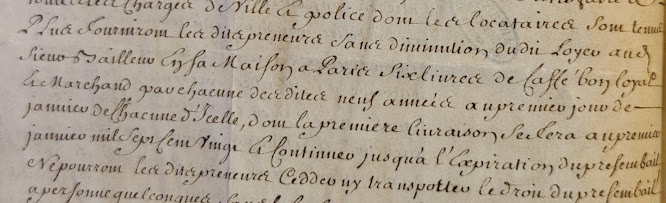 touttes les Charges de Ville & police dont les locataires sont tenus
Plus fourniront lesdits preneurs sans diminution dudit Loyer audit
Sieur Bailleur En sa Maison a Paris Six livres de Caffé bon loyal
& Marchand par chacune desdites neuf années au premier jour de
janvier de Chacune d'Icelle, dont la premiere livraison se fera au premier
janvier mil sept cent vingt & Continuer jusqu'à l'Expiration du present bail
Ne pourront lesdits preneurs Cedder ny transporter le droit du present bail
a personne quelconque sans le